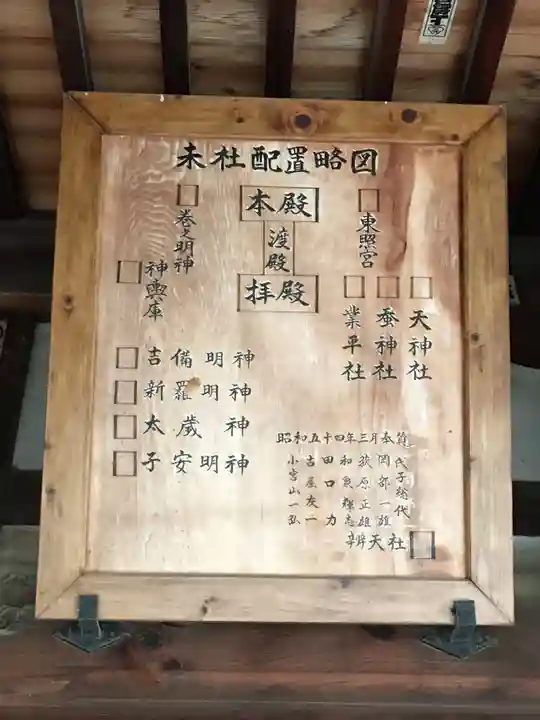 末社配置略図
本殿
渡殿
拝殿
東照宮
天神社
蚕神社
業平社
巻之明神
神輿庫
吉備明神
新羅明神
太歳神
子安明神
昭和五十四年三月奉
氏子総代
岡部一雄
荻原正雄
田口力
古屋友一
小宮山一弘
辨天社